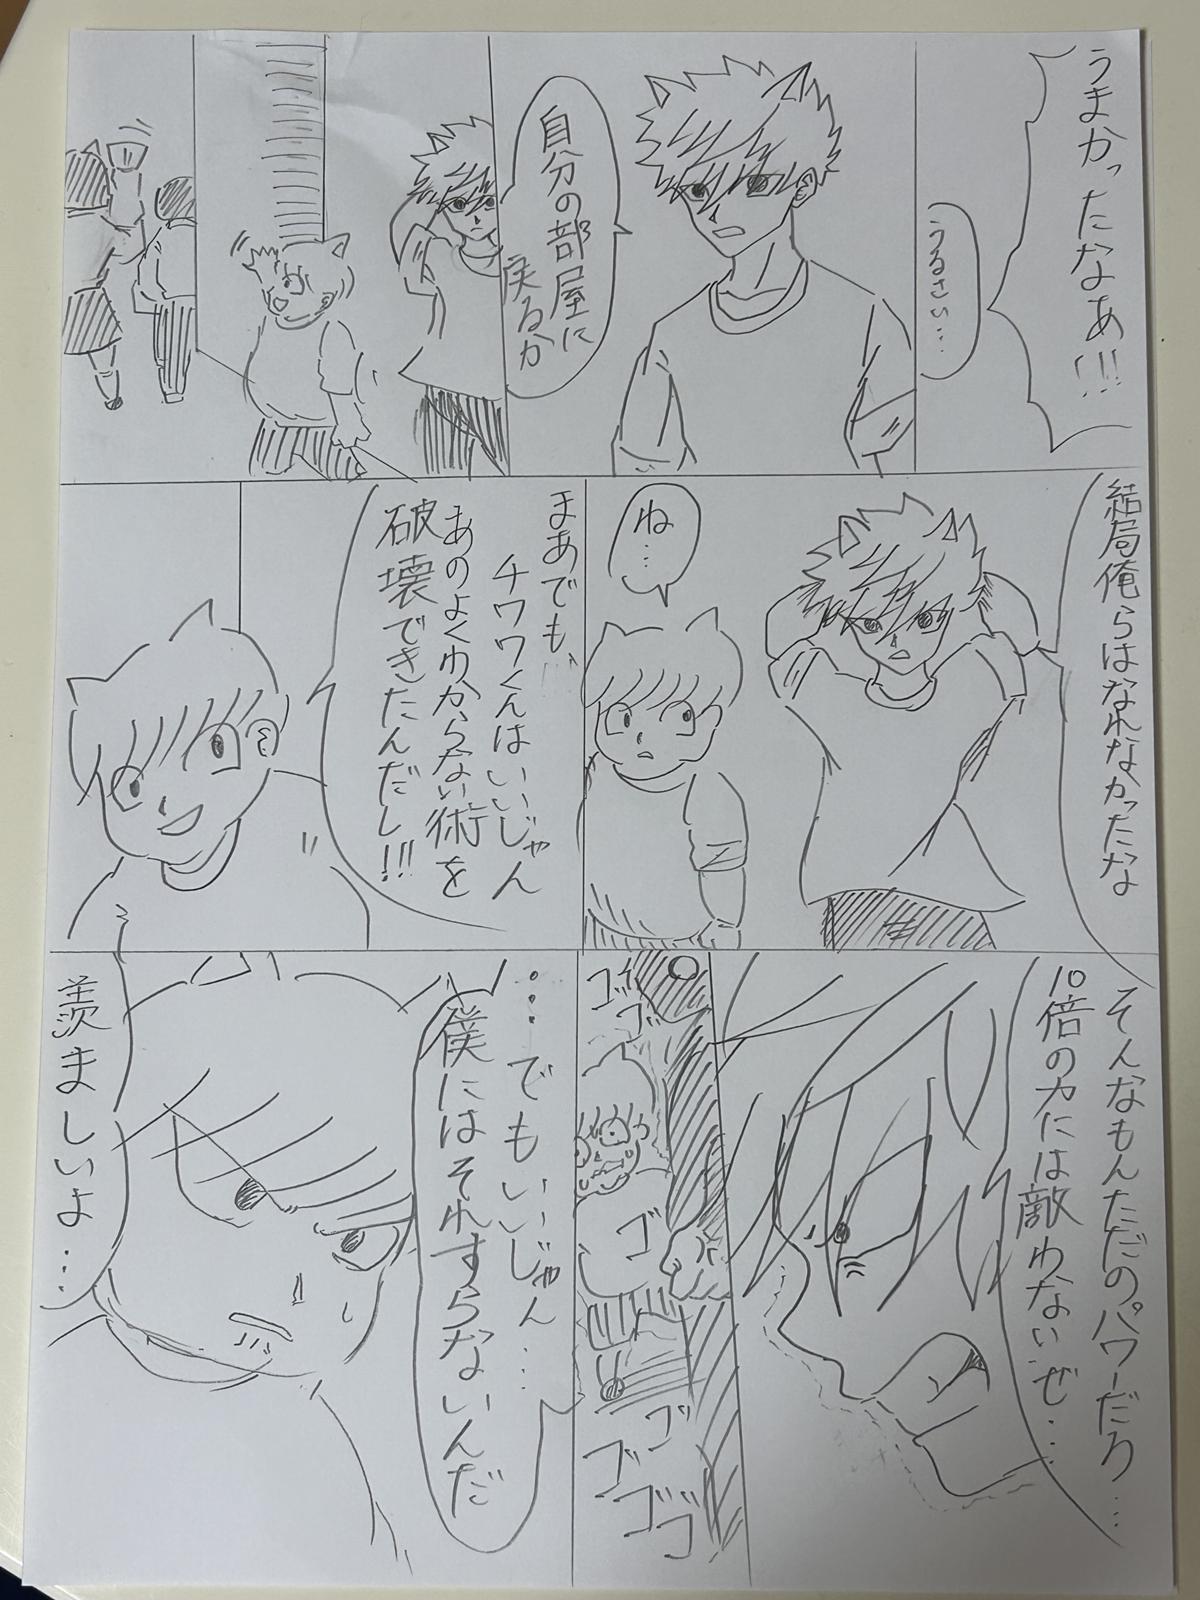 うまかったなあ!!!
うるさい…
自分の部屋に
戻るか
結局俺らはなれなかったな
ね…
まあでも、
チワワくんはいいじゃん
あのよくわからない術を
破壊できたんだし!!
そんなもんただのパワーだろ…
10倍の力には敵わないぜ…
ゴゴゴ
ゴ
ゴゴゴゴゴ
…でもいいじゃん…
僕にはそれすらないんだ
羨ましいよ…